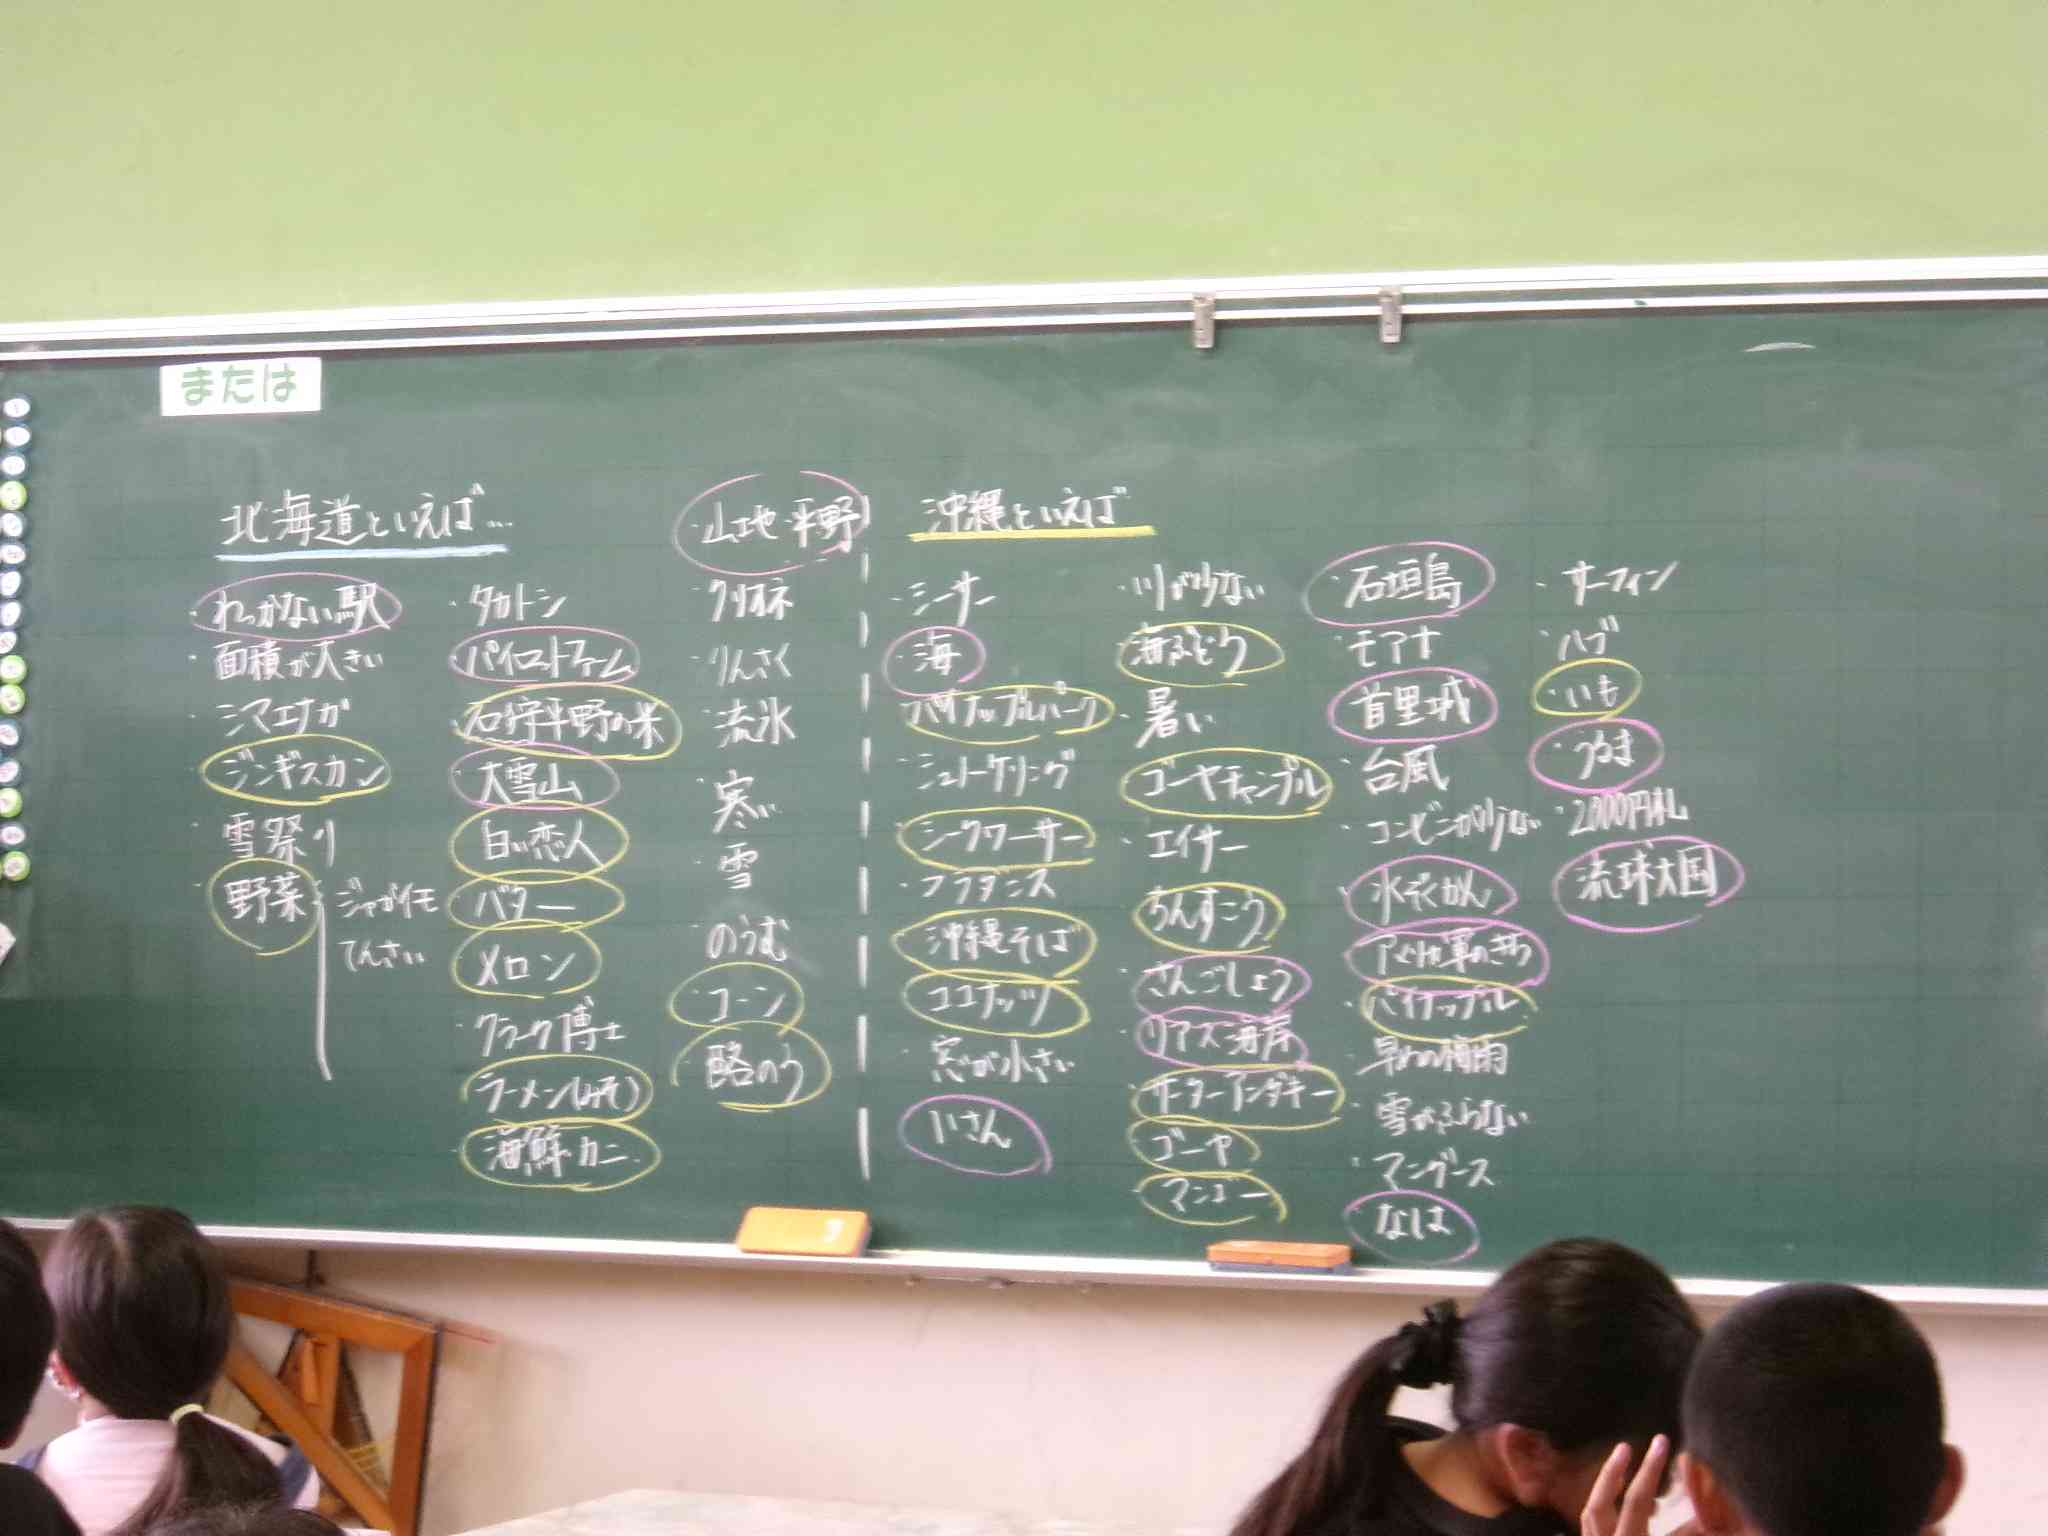 または
北海道といえば…
・わっかない駅
・面積が大きい
・シマエナガ
・ジンギスカン
・雪祭り
・野菜
ジャガイモ
てんさい
・タカトシ
・パイロットファーム
・石狩平野の米
・大雪山
・白い恋人
・バター
・メロン
・クラーク博士
・ラーメン(みそ)
・海鮮・カニ
・山地・平野
・クリオネ
・りんさく
・流氷
・寒い
・雪
・のうむ
・コーン
・酪のう
沖縄といえば
・シーサー
・海
・パイナップルパーク
・シュノーケリング
・シークワーサー
・フラダンス
・沖縄そば
・ココナッツ
・窓が小さい
・川が少ない
・海ぶどう
・暑い
・ゴーヤチャンプル
・エイサー
・ちんすこう
・さんごしょう
・リアス海岸
・サーターアンダギー
・ゴーヤ
・マンゴー
・石垣島
・モアナ
・首里城
・台風
・コンビニが少ない
・水ぞくかん
・アメリカ軍のきち
・パイナップル
・早めの梅雨
・雪がふらない
・マングース
・なは
・サーフィン
・ハブ
・いも
・うるま
・2000円札
・流球大国